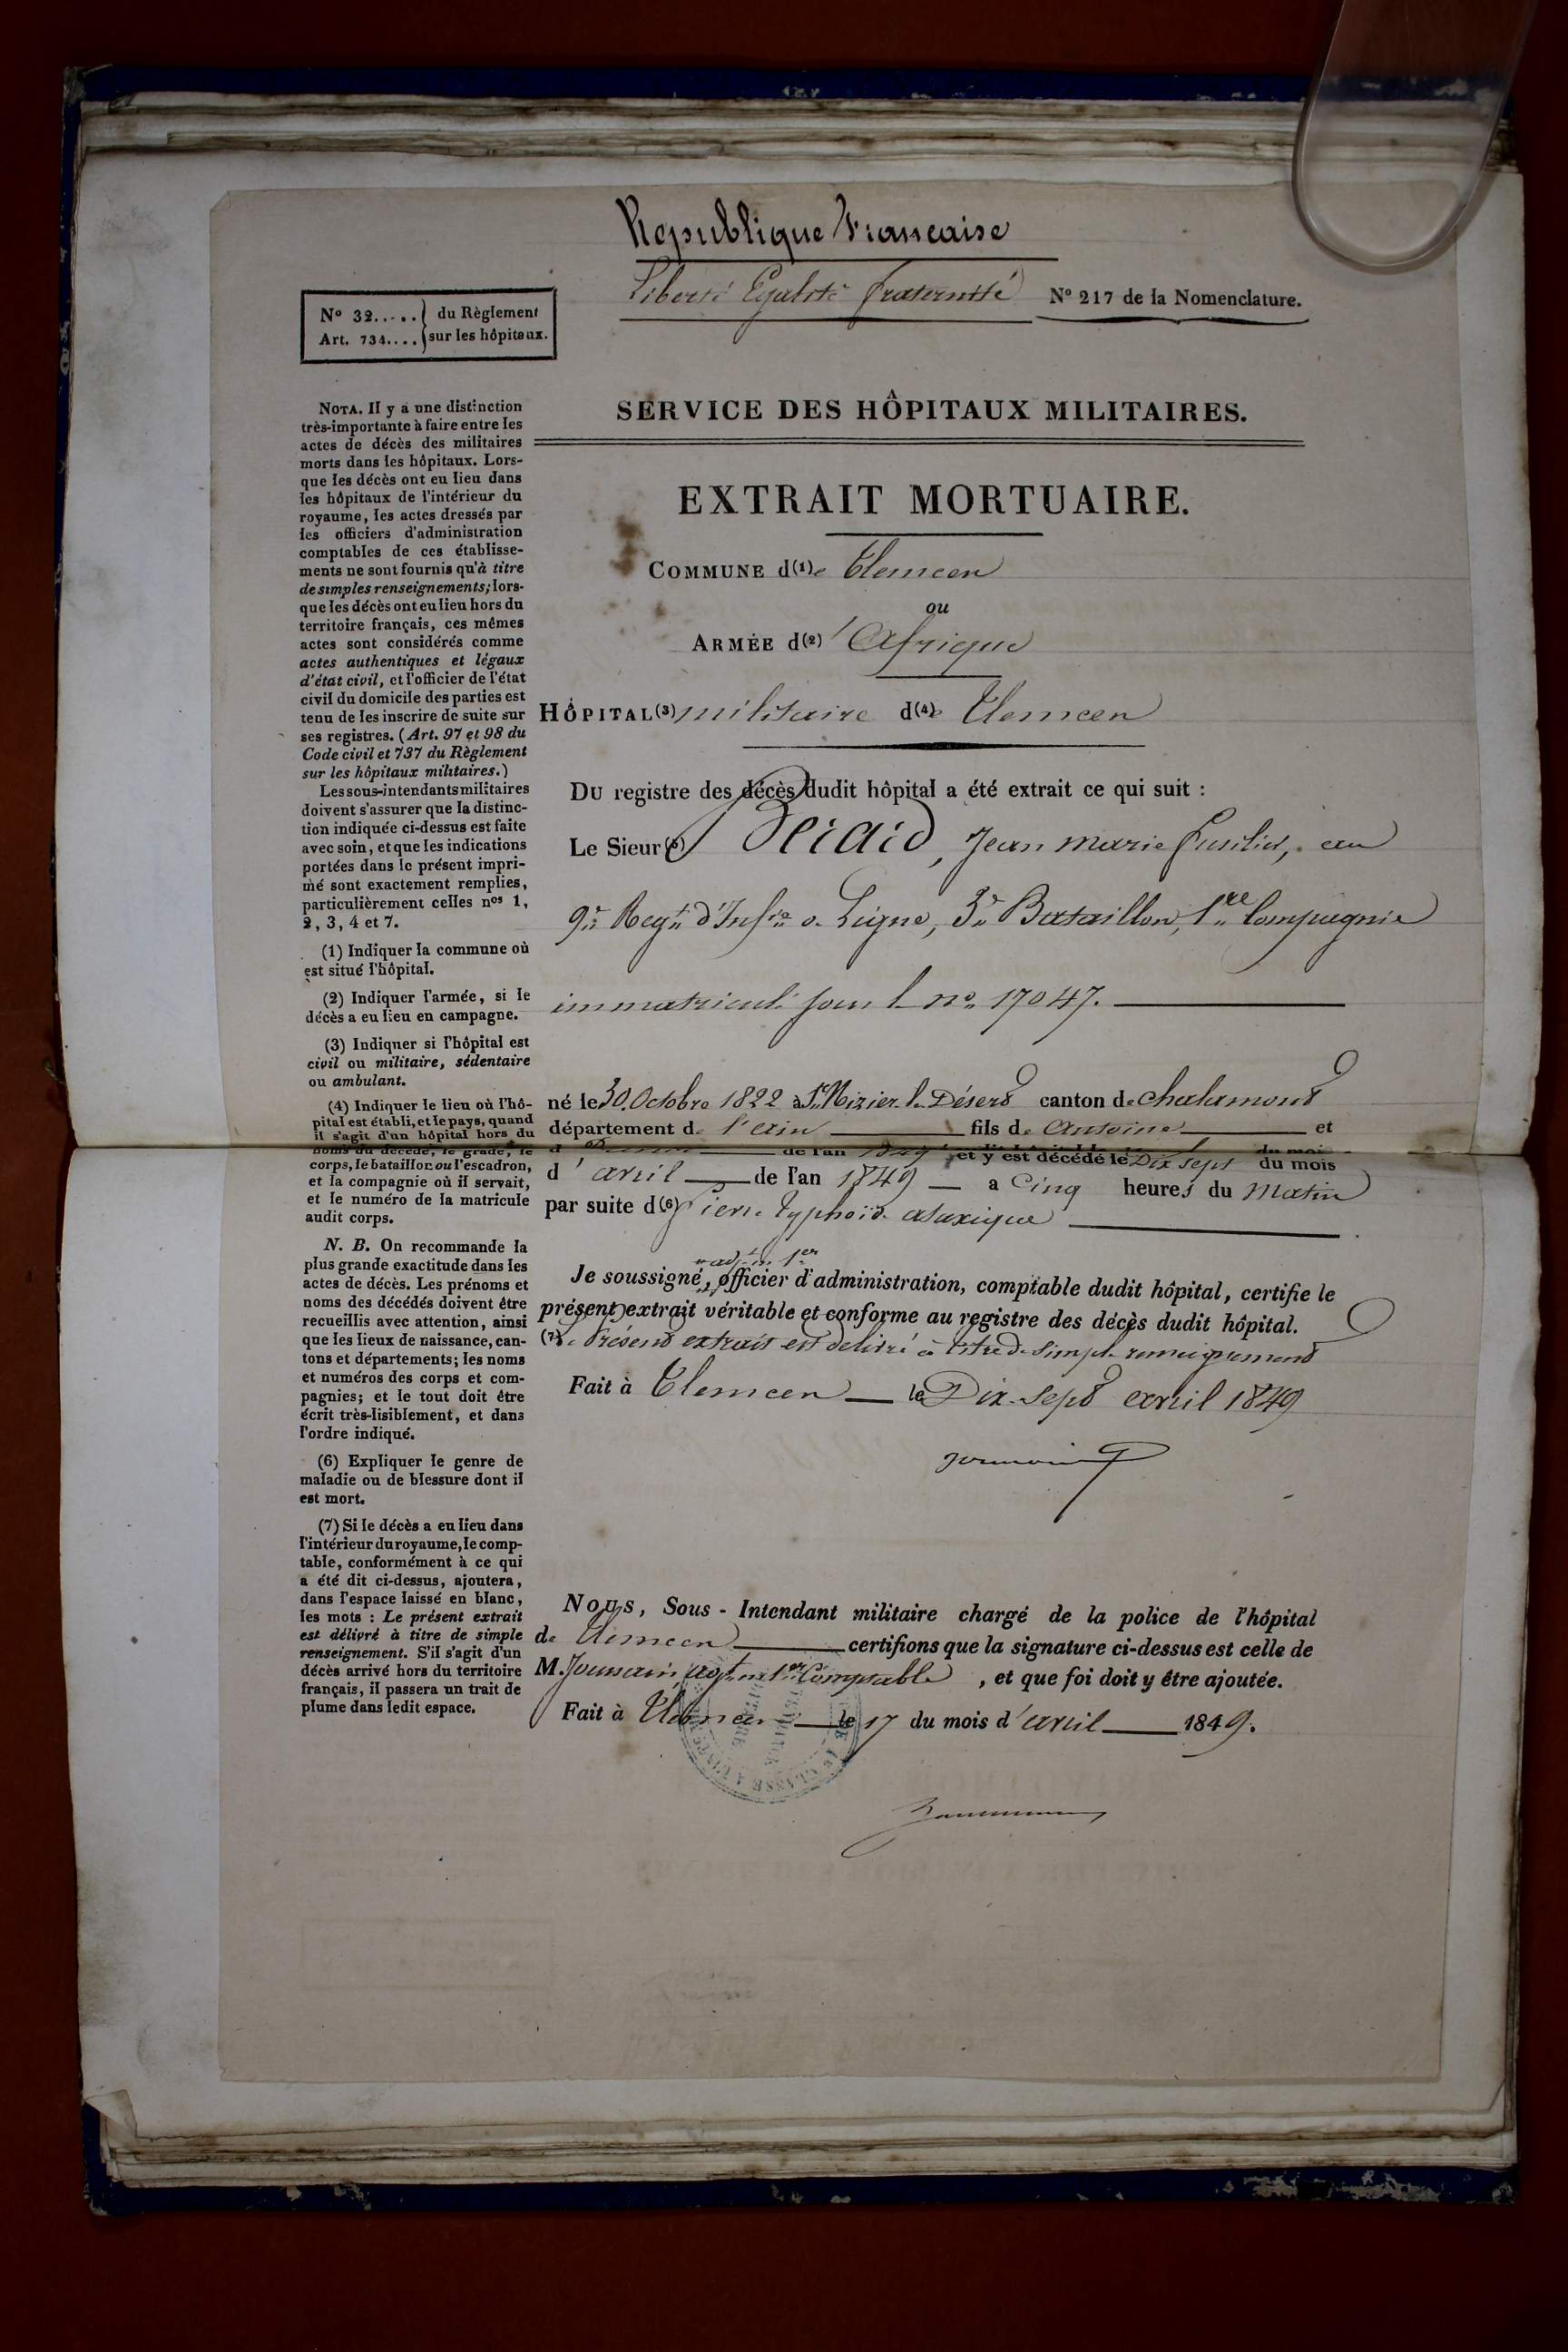 République Francaise
Liberté Egalité fraternité
Nº 217 de la Nomenclature.
Nº 32..... du Règlement
Art. 734.... sur les hôpitaux.
SERVICE DES HÔPITAUX MILITAIRES.
EXTRAIT MORTUAIRE.
COMMUNE d(1)e Tlemcen
ou
ARMÉE d(2)'Afrique
HÔPITAL(3) militaire d(4)e Tlemcen
Du registre des décès dudit hôpital a été extrait ce qui suit :
Le Sieur(5) , Jean marie fusilier, au
9e Regt d'Infie de Ligne, 3e Bataillon, 1re Compagnie
immatriculé sous le no 17047.
né le 30 Octobre 1822 à St Nizier le Désert canton de chalamont
département de l'ain fils de Antoine et
de l'an et y est décédé le Dix sept du mois
d'avril de l'an 1849 a Cinq heures du Matin
par suite d(6) fievre Typhoïde ataxique
Je soussigné, officier d'administration, comptable dudit hôpital, certifie le
présent extrait véritable et conforme au registre des décès dudit hôpital.
(7) Le Présent extrait est délivré à titre de simple renseignement
Fait à Tlemcen le Dix-Sept avril 1849
Nous, Sous-Intendant militaire chargé de la police de l'hôpital
de Tlemcen certifions que la signature ci-dessus est celle de
M. Comptable, et que foi doit y être ajoutée.
Fait à Tlemcen le 17 du mois d'avril 1849.
NOTA. Il y a une distinction
très-importante à faire entre les
actes de décès des militaires
morts dans les hôpitaux. Lors-
que les décès ont eu lieu dans
les hôpitaux de l'intérieur du
royaume, les actes dressés par
les officiers d'administration
comptables de ces établisse-
ments ne sont fournis qu'à titre
de simples renseignements; lors-
que les décès ont eu lieu hors du
territoire français, ces mêmes
actes sont considérés comme
actes authentiques et légaux
d'état civil, et l'officier de l'état
civil du domicile des parties est
tenu de les inscrire de suite sur
ses registres. (Art. 97 et 98 du
Code civil et 737 du Règlement
sur les hôpitaux militaires.)
Les sous-intendants militaires
doivent s'assurer que la distinc-
tion indiquée ci-dessus est faite
avec soin, et que les indications
portées dans le présent impri-
mé sont exactement remplies,
particulièrement celles nos 1,
2, 3, 4 et 7.
(1) Indiquer la commune où
est situé l'hôpital.
(2) Indiquer l'armée, si le
décès a eu lieu en campagne.
(3) Indiquer si l'hôpital est
civil ou militaire, sédentaire
ou ambulant.
(4) Indiquer le lieu où l'hô-
pital est établi, et le pays, quand
il s'agit d'un hôpital hors du
noms du décédé, le grade, le
corps, le bataillon ou l'escadron,
et la compagnie où il servait,
et le numéro de la matricule
audit corps.
N. B. On recommande la
plus grande exactitude dans les
actes de décès. Les prénoms et
noms des décédés doivent être
recueillis avec attention, ainsi
que les lieux de naissance, can-
tons et départements; les noms
et numéros des corps et com-
pagnies; et le tout doit être
écrit très-lisiblement, et dans
l'ordre indiqué.
(6) Expliquer le genre de
maladie ou de blessure dont il
est mort.
(7) Si le décès a eu lieu dans
l'intérieur du royaume, le comp-
table, conformément à ce qui
a été dit ci-dessus, ajoutera,
dans l'espace laissé en blanc,
les mots : Le présent extrait
est délivré à titre de simple
renseignement. S'il s'agit d'un
décès arrivé hors du territoire
français, il passera un trait de
plume dans ledit espace.